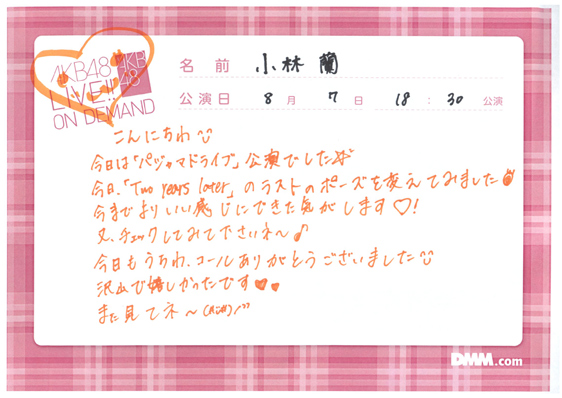 AKB48
LIVE!!
ON DEMAND
AKB
48
名前 小林 蘭
公演日 8月 7日 18:30 公演
こんにちわ
今日は「パジャマドライブ」公演でした☆
今日、「Two years later」のラストのポーズを変えてみました
今までよりいい感じにできた気がします♡!
又、チェックしてみて下さいネ〜♪
今日もうちわ、コールありがとうございました
沢山で嬉しかったです♥♥
また見てネ〜
DMM.com